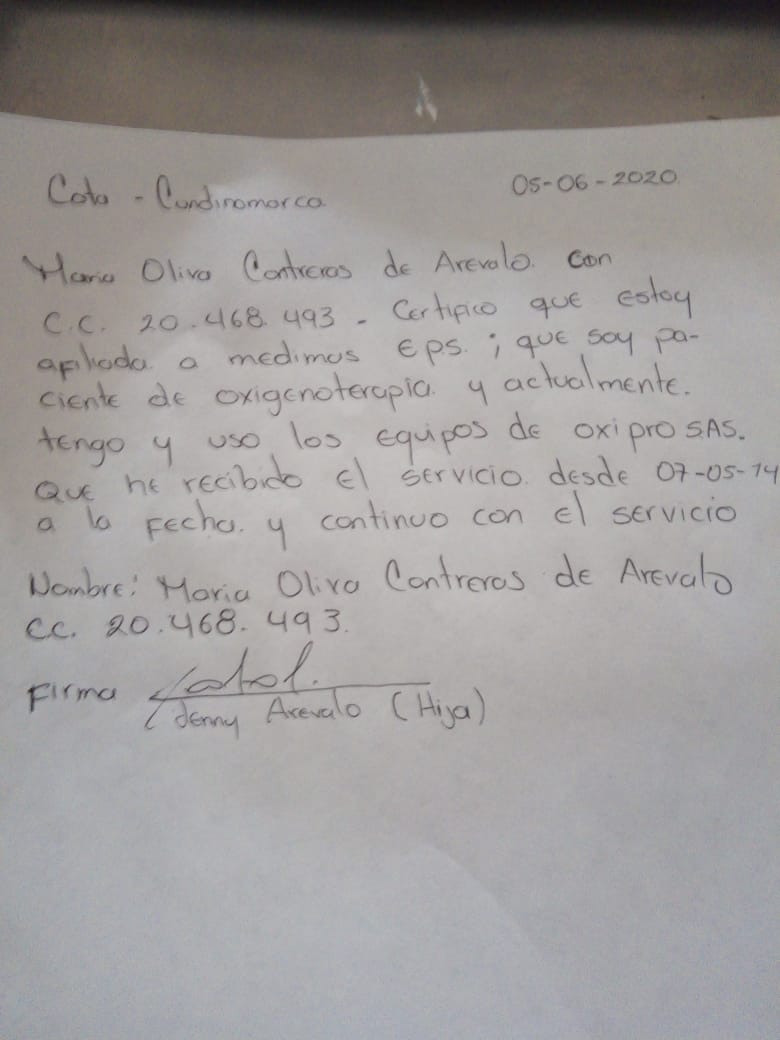 Cota - Cundinamarca
05-06-2020.
Maria Oliva Contreras de Arevalo. con
C.C. 20.468.493 - Certifico que estoy
afiliada a medimas Eps. ; que soy pa-
ciente de oxigenoterapia y actualmente.
tengo y uso los equipos de oxipro SAS.
Que he recibido el servicio. desde 07-05-14
a la Fecha. y continuo con el servicio
Nombre: Maria Oliva Contreras de Arevalo
CC. 20.468.493.
Firma
Jenny Arevalo (Hija)